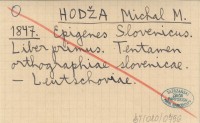 HODŽA Michal M.
1847. Epigenes Slovenicus.
Liber primus. Tentamen
orthographiae slovenicae.
– Leutschoviae.